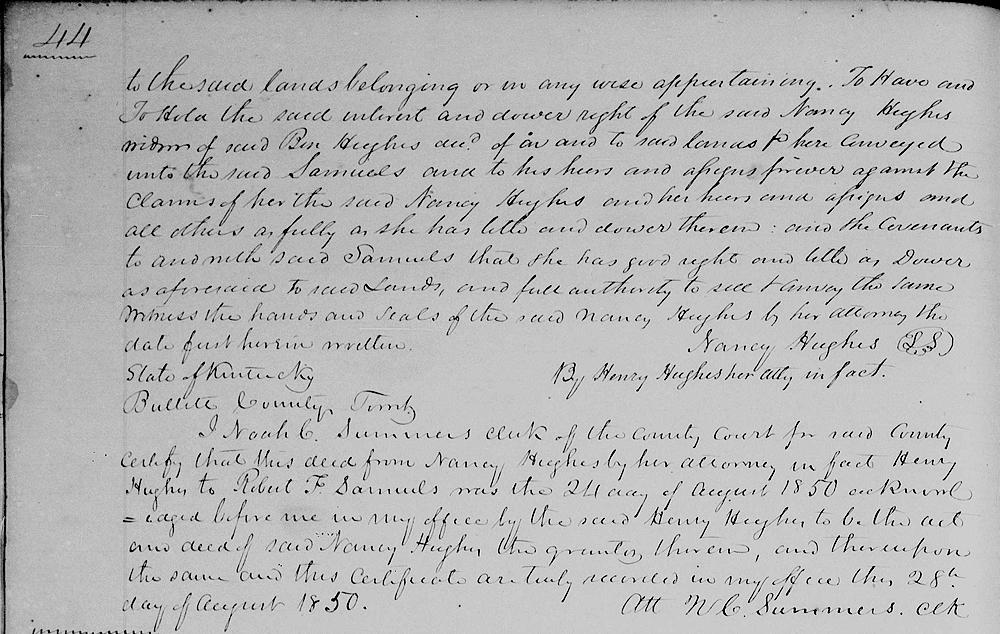 44
to the said lands belonging or in any wise appertaining. To Have and
To Hold the said interest and dower right of the said Nancy Hughes
widow of said Ben Hughes decd. of in and to said lands here conveyed
unto the said Samuels and to his heirs and assigns forever against the
Claims of her the said Nancy Hughes and her heirs and assigns and
all others as fully as she has title and dower therein: and she Covenants
to and with said Samuels that she has good right and title as Dower
as aforesaid to said Lands, and full authority to sell & convey the same
Witness the hands and seals of the said Nancy Hughes by her attorney the
date first herein written. Nancy Hughes (L,S,)
State of Kentucky By Henry Hughes her atty in fact.
Bullitt County,
I Noah C. Summers clerk of the County Court for said County
Certify that this deed from Nancy Hughes by her attorney in fact Henry
Hughes to Robert F. Samuels was the 24 day of August 1850 acknowl
=edged before me in my office by the said Henry Hughes to be the act
and deed of said Nancy Hughes the grantor, therein, and thereupon
the same and this Certificate are truly recorded in my office this 28th
day of August 1850. Att N C. Summers. clk